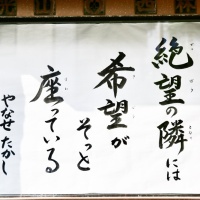 絶望の隣には
希望が
そっと
座っている
やなせたかし